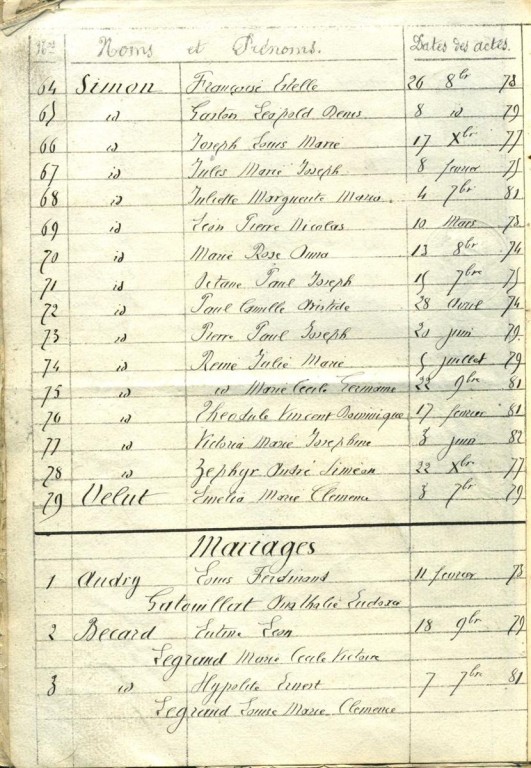 Nos Noms et Prénoms. Dates des actes.
64 Simon Françoise Estelle 26 8bre 73
65 id Gaston Léopold Denis 8 id 79
66 id Joseph Louis Marie 17 Xbre 77
67 id Jules Marie Joseph 8 février 75
68 id Juliette Marguerite Maria 4 7bre 81
69 id Léon Pierre Nicolas 10 Mars 73
70 id Marie Rose Anna 13 8bre 74
71 id Octave Paul Joseph 15 7bre 75
72 id Paul Camille Aristide 28 Avril 74
73 id Pierre Paul Joseph 20 juin 79
74 id René Julie Marie 5 juillet 79
75 id id Marie Cécile Germaine 22 9bre 81
76 id Théodule Vincent Dominique 17 février 81
77 id Victoria Marie Joséphine 3 juin 82
78 id Zéphyr André Siméon 22 Xbre 77
79 Velut Emelia Marie Clémence 3 7bre 79
Mariages
1 Andry Louis Ferdinand 11 février 73
Eudoxie
2 Becard Léon 18 9bre 79
Legrand Marie Cécile Victoire
3 id Hypolite Ernest 7 7bre 81
Legrand Louise Marie Clemence